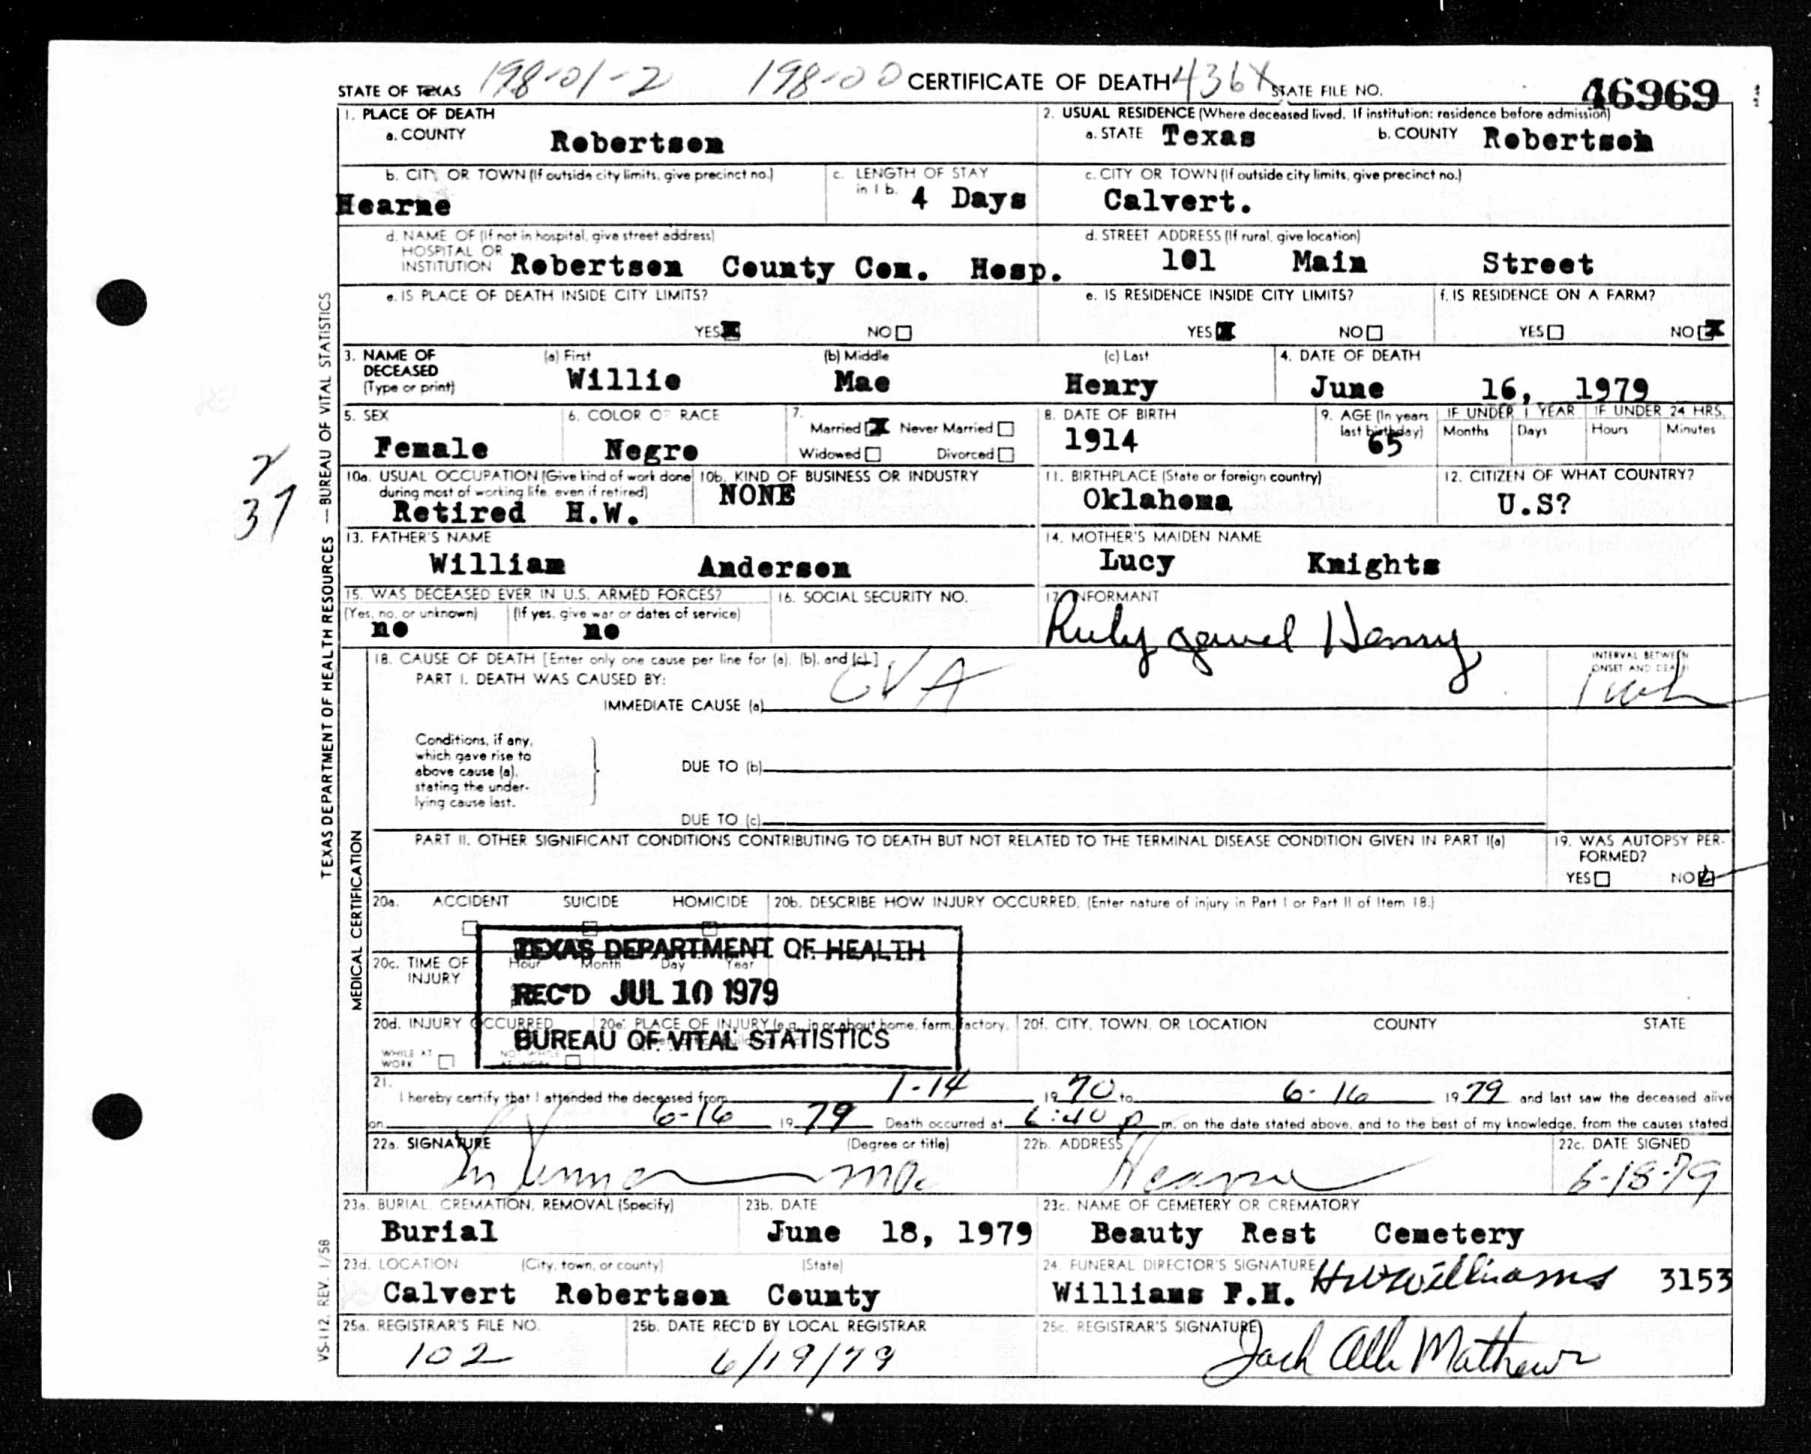 STATE OF TEXAS 198-01-2 198-00 CERTIFICATE OF DEATH 436X STATE FILE NO. 46969
1. PLACE OF DEATH
a. COUNTY Robertson
2. USUAL RESIDENCE (Where deceased lived. If institution: residence before admission)
a. STATE Texas b. COUNTY Robertson
b. CITY OR TOWN (If outside city limits, give precinct no.)
Hearne
c. LENGTH OF STAY in 1 b. 4 Days
c. CITY OR TOWN (If outside city limits, give precinct no.)
Calvert.
d. NAME OF (If not in hospital, give street address)
HOSPITAL OR
INSTITUTION Robertson County Com. Hosp.
d. STREET ADDRESS (If rural, give location)
101 Main Street
e. IS PLACE OF DEATH INSIDE CITY LIMITS?
YES NO
e. IS RESIDENCE INSIDE CITY LIMITS?
YES NO
f. IS RESIDENCE ON A FARM?
YES NO
3. NAME OF
DECEASED
(Type or print)
(a) First (b) Middle (c) Last
Willie Mae Henry
4. DATE OF DEATH
June 16, 1979
5. SEX
Female
6. COLOR OR RACE
Negro
7.
Married Never Married
Widowed Divorced
8. DATE OF BIRTH
1914
9. AGE (In years
last birthday)
65
IF UNDER 1 YEAR IF UNDER 24 HRS.
Months Days Hours Minutes
10a. USUAL OCCUPATION (Give kind of work done
during most of working life, even if retired)
Retired H.W.
10b. KIND OF BUSINESS OR INDUSTRY
NONE
11. BIRTHPLACE (State or foreign country)
Oklahoma
12. CITIZEN OF WHAT COUNTRY?
U.S?
13. FATHER'S NAME
William Anderson
14. MOTHER'S MAIDEN NAME
Lucy Knights
15. WAS DECEASED EVER IN U.S. ARMED FORCES?
(Yes, no, or unknown) (If yes, give war or dates of service)
no no
16. SOCIAL SECURITY NO.
17. INFORMANT
Ruby Jewel Henry
18. CAUSE OF DEATH [Enter only one cause per line for (a), (b), and (c).]
PART I. DEATH WAS CAUSED BY:
IMMEDIATE CAUSE (a) CVA
INTERVAL BETWEEN
ONSET AND DEATH
1 wk
Conditions, if any,
which gave rise to
above cause (a),
stating the under-
lying cause last.
DUE TO (b)
DUE TO (c)
PART II. OTHER SIGNIFICANT CONDITIONS CONTRIBUTING TO DEATH BUT NOT RELATED TO THE TERMINAL DISEASE CONDITION GIVEN IN PART I(a)
19. WAS AUTOPSY PER-
FORMED?
YES NO
20a. ACCIDENT SUICIDE HOMICIDE
20b. DESCRIBE HOW INJURY OCCURRED. (Enter nature of injury in Part I or Part II of Item 18.)
20c. TIME OF
INJURY
Hour Month Day Year
TEXAS DEPARTMENT OF HEALTH
REC'D JUL 10 1979
BUREAU OF VITAL STATISTICS
20d. INJURY OCCURRED
WHILE AT
WORK
NOT WHILE
AT WORK
20e. PLACE OF INJURY (e.g., in or about home, farm, factory,
20f. CITY, TOWN, OR LOCATION COUNTY STATE
21.
I hereby certify that I attended the deceased from 1-14 1970 to 6-16 1979 and last saw the deceased alive
on 6-16 1979 Death occurred at 6:40 p m. on the date stated above, and to the best of my knowledge, from the causes stated.
22a. SIGNATURE (Degree or title)
MD.
22b. ADDRESS
Hearne
22c. DATE SIGNED
6-18-79
23a. BURIAL, CREMATION, REMOVAL (Specify)
Burial
23b. DATE
June 18, 1979
23c. NAME OF CEMETERY OR CREMATORY
Beauty Rest Cemetery
23d. LOCATION (City, town, or county) (State)
Calvert Robertson County
24. FUNERAL DIRECTOR'S SIGNATURE
Williams F.H. HW Williams 3153
25a. REGISTRAR'S FILE NO.
102
25b. DATE REC'D BY LOCAL REGISTRAR
6/19/79
25c. REGISTRAR'S SIGNATURE
Mathews
TEXAS DEPARTMENT OF HEALTH RESOURCES — BUREAU OF VITAL STATISTICS
MEDICAL CERTIFICATION
VS-112, REV. 1/58
2
37